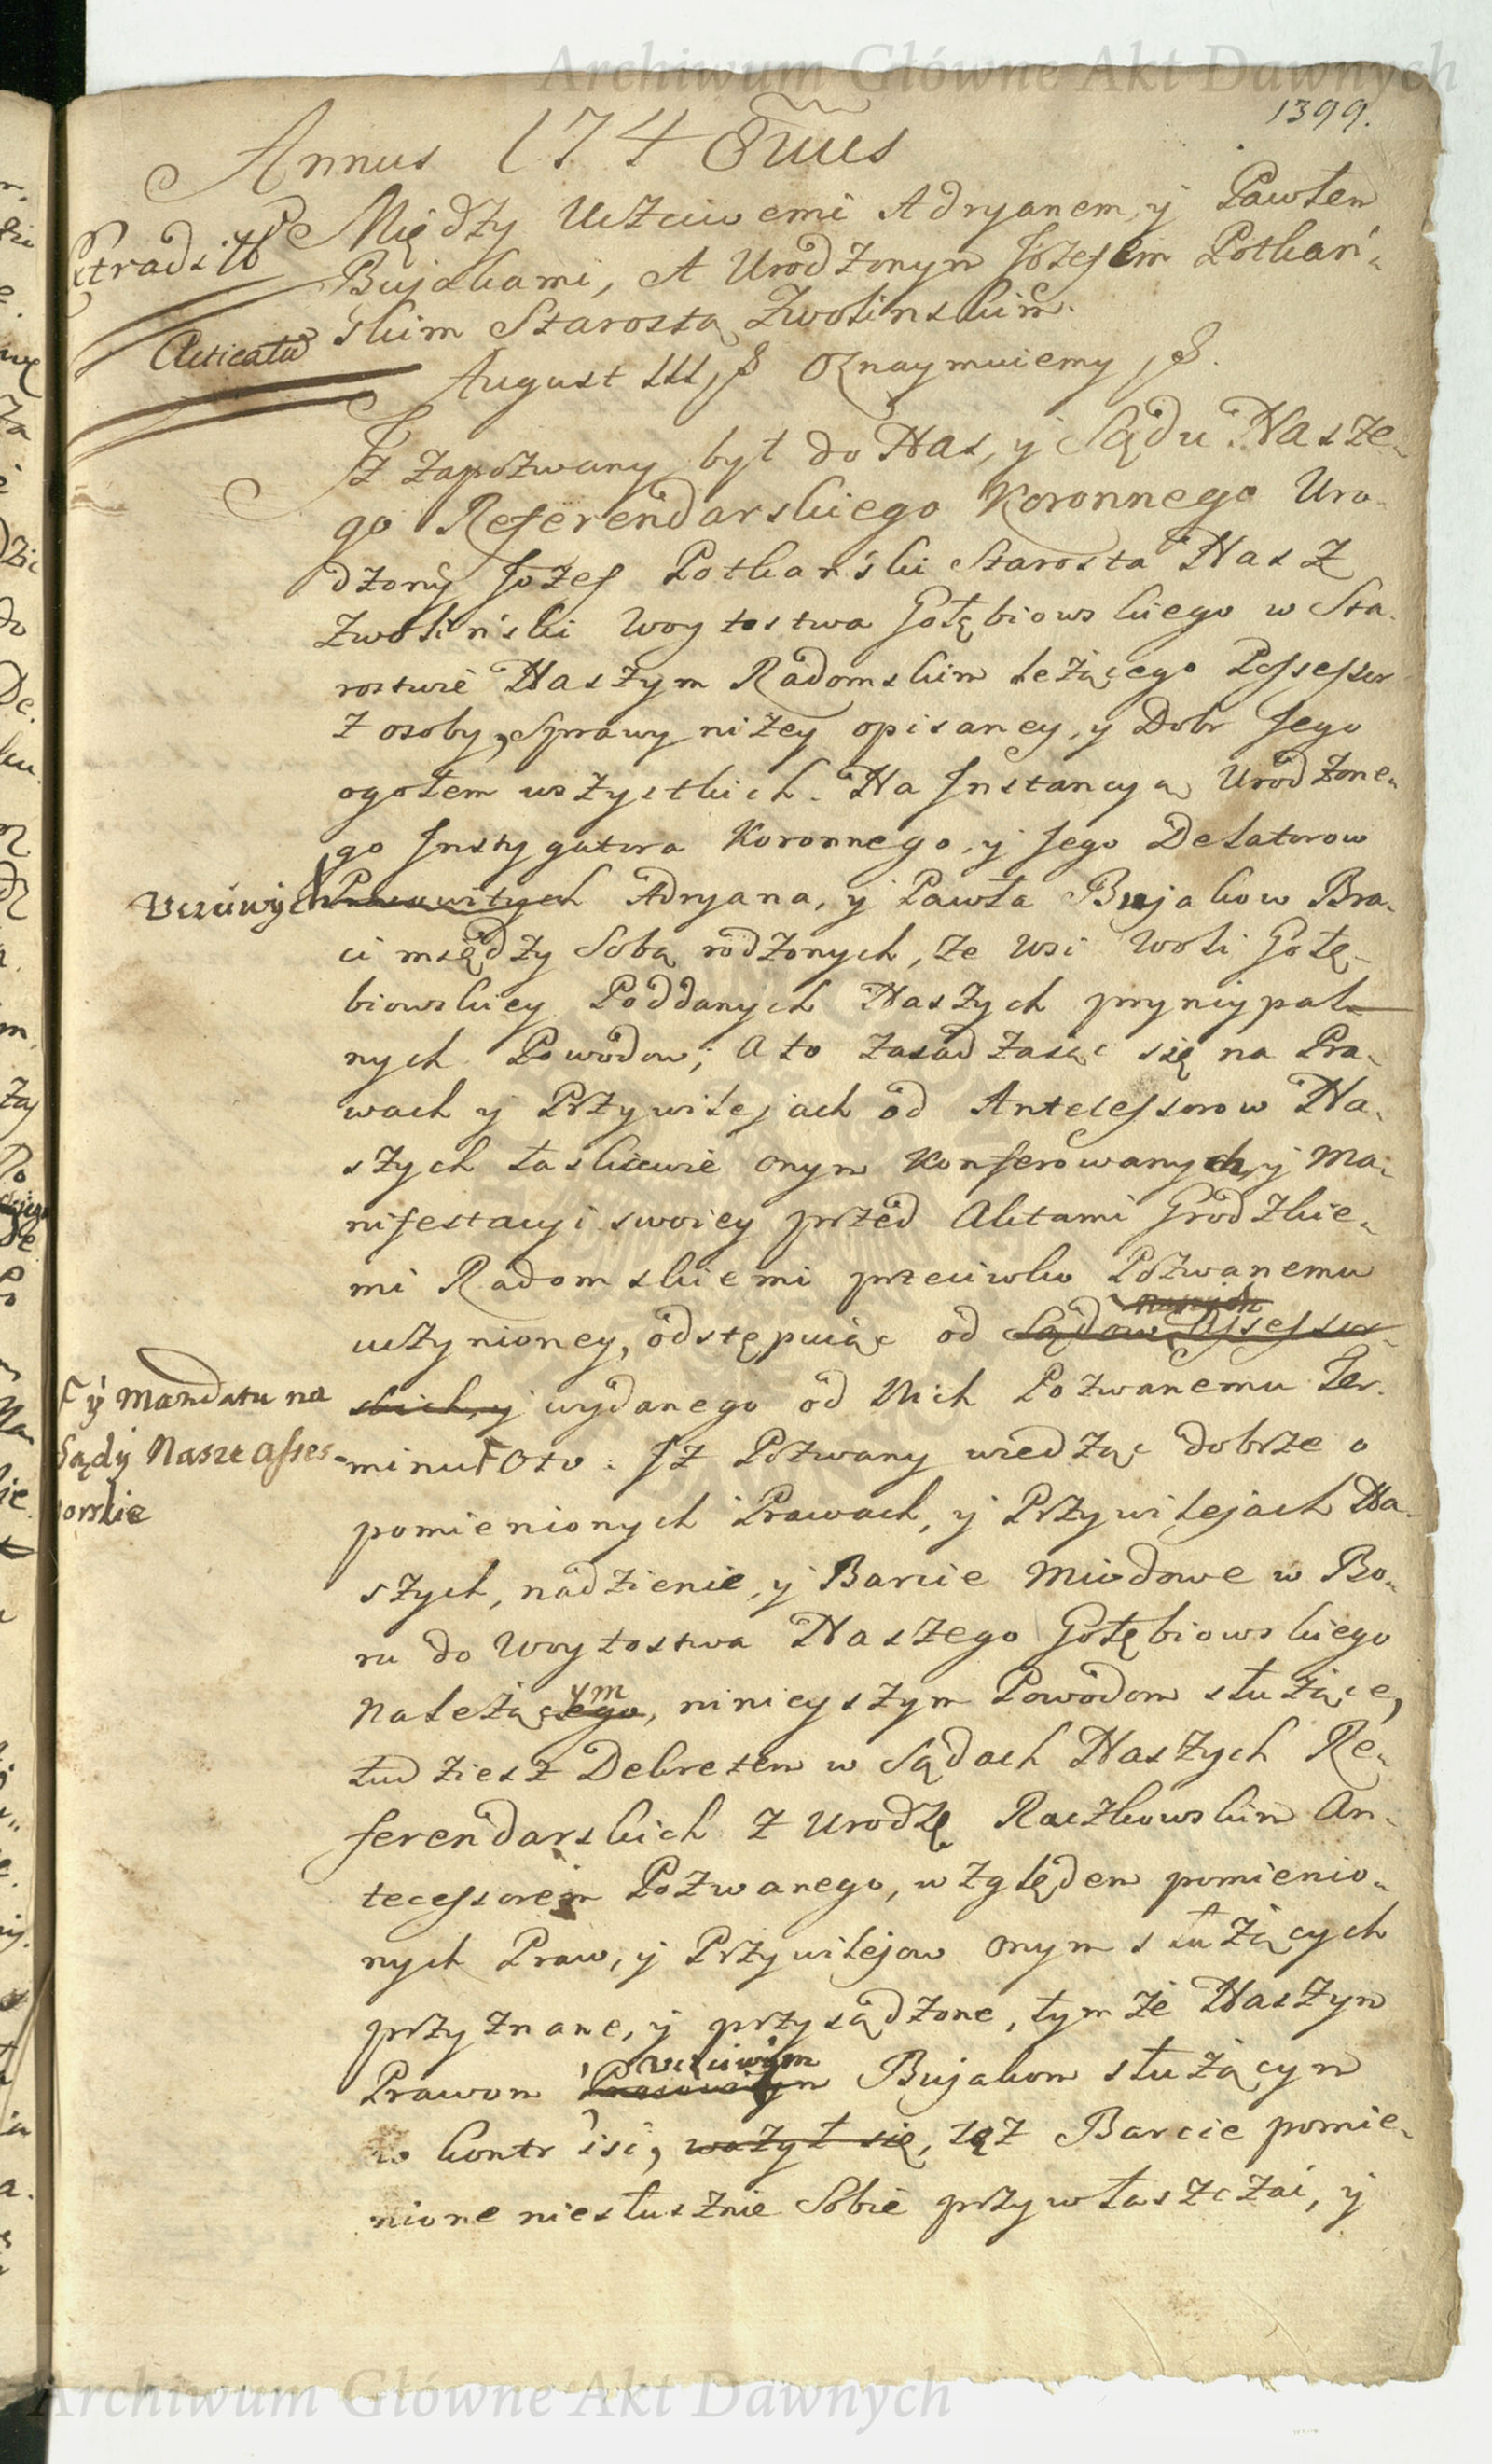 Archiwum Główne Akt Dawnych
1399.
Annus 1748vus
Między Uczciwemi Adryanem, y Pawłem
Extradit
Bujakami, A Urodzonym Jozefem Potkań-
skim Starostą Zwolinskim.
Acticatū
August III, § Oznaymuiemy, §.
Iż zapozwany był do Nas, y Sądu Nasze-
go Referendarskiego Koronnego Uro-
dzony Jozef Potkański Starosta Nasz
Zwoliński Woytostwa Gołębiowskiego w Sta-
rostwie Naszym Radomskim leżącego Possessor
z osoby, Sprawy niżey opisaney, y Dobr Jego
ogołem wszystkich. Na Instancyą Urodzone-
go Instygatora Koronnego, y Jego Delatorow
Uczciwych Pracowitych Adryana, y Pawła Bujakow Bra-
ci między Sobą rodzonych, ze Wsi Woli Gołę-
biowskiey Poddanych Naszych pryncypal-
nych Powodow; A to zasadzaiąc się na Pra-
wach y Przywilejach od Antecessorow Na-
szych łaskawie onym konferowanych, y Ma-
nifestacyi swoiey przed Aktami Grodzkie-
mi Radomskiemi przeciwko Pozwanemu
naszych
uczynioney, odstępuiąc od Sądow Assessor-
skich, y wydanego od Nich Pozwanemu Ter-
y Mandatu na
Sądy Nasze Asses-
sorskie
minu Oto: Iż Pozwany wiedząc dobrze o
pomienionych Prawach, y Przywilejach Na-
szych, nadzienie, y Barcie Miodowe w Bo-
ru do Woytostwa Naszego Gołębiowskiego
ym
Należącego, ninieyszym Powodom służące,
tudziesz Dekretem w Sądach Naszych Re-
ferendarskich z Urodz. Raczkowskim An-
tecessorem Pozwanego, względem pomienio-
nych Praw, y Przywilejow onym służących
przyznane, y przysądzone, tymże Naszym
uczciwym
Prawom Pracowitym Bujakom służącym
w kontr iść, ważył się, też Barcie pomie-
nione niesłusznie Sobie przywłaszczać, y
Archiwum Główne Akt Dawnych